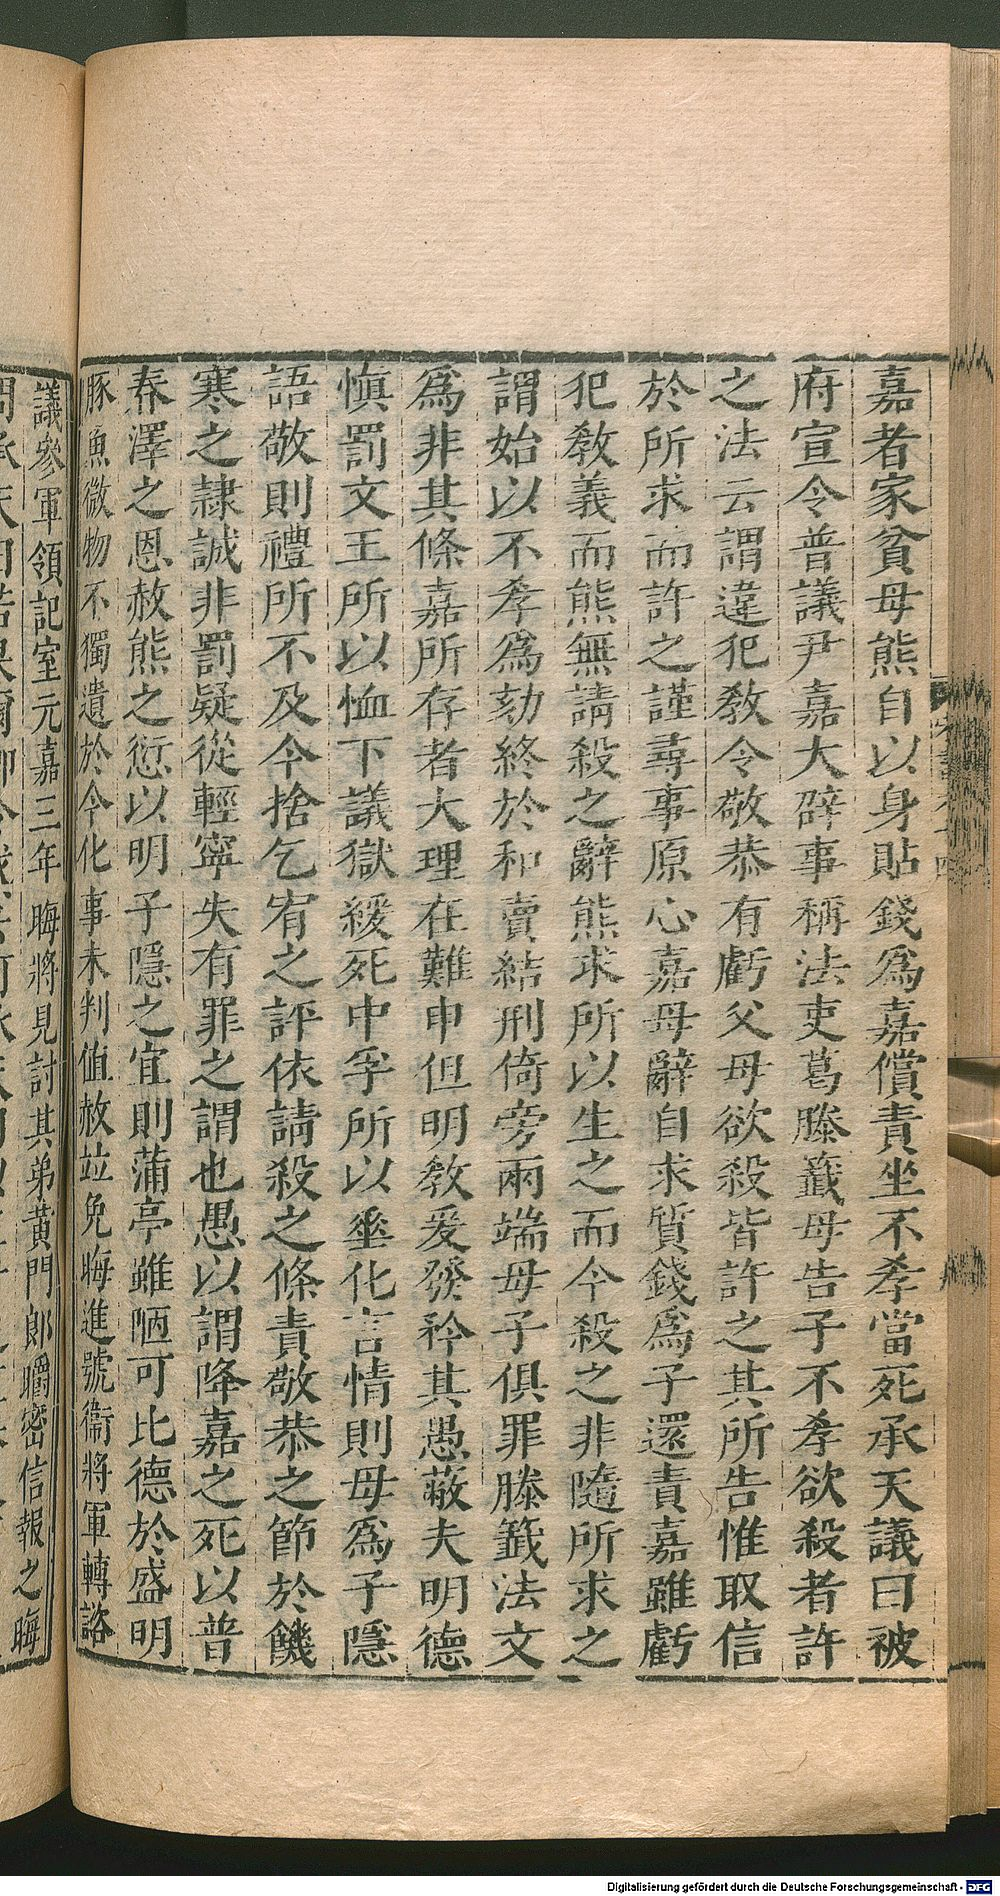 嘉者家貧母熊自以身貼錢爲嘉償責坐不孝當死承天議曰被
府宣令普議尹嘉大辟事稱法吏葛滕籤母告子不孝欲殺者許
之法云謂違犯敎令敬恭有虧父母欲殺皆許之其所告惟取信
於所求而許之謹尋事原心嘉母辭自求質錢爲子還責嘉雖虧
犯敎義而熊無請殺之辭熊求所以生之而今殺之非隨所求之
謂始以不孝爲劾終於和賣結刑倚旁兩端母子俱罪滕籤法文
爲非其條嘉所存者大理在難申但明敎爰發矜其愚蔽夫明德
愼罰文王所以恤下議獄緩死中孚所以垂化言情則母爲子隱
語敬則禮所不及今捨乞宥之評依請殺之條責敬恭之節於饑
寒之隷誠非罰疑從輕寧失有罪之謂也愚以謂降嘉之死以普
春澤之恩赦熊之愆以明子隱之宜則蒲亭雖陋可比德於盛明
豚魚微物不獨遺於今化事未判值赦竝免晦進號衞將軍轉諮
議參軍領記室元嘉三年晦將見討其弟黃門郎㬭密信報之晦
Digitalisierung gefördert durch die Deutsche Forschungsgemeinschaft - DFG